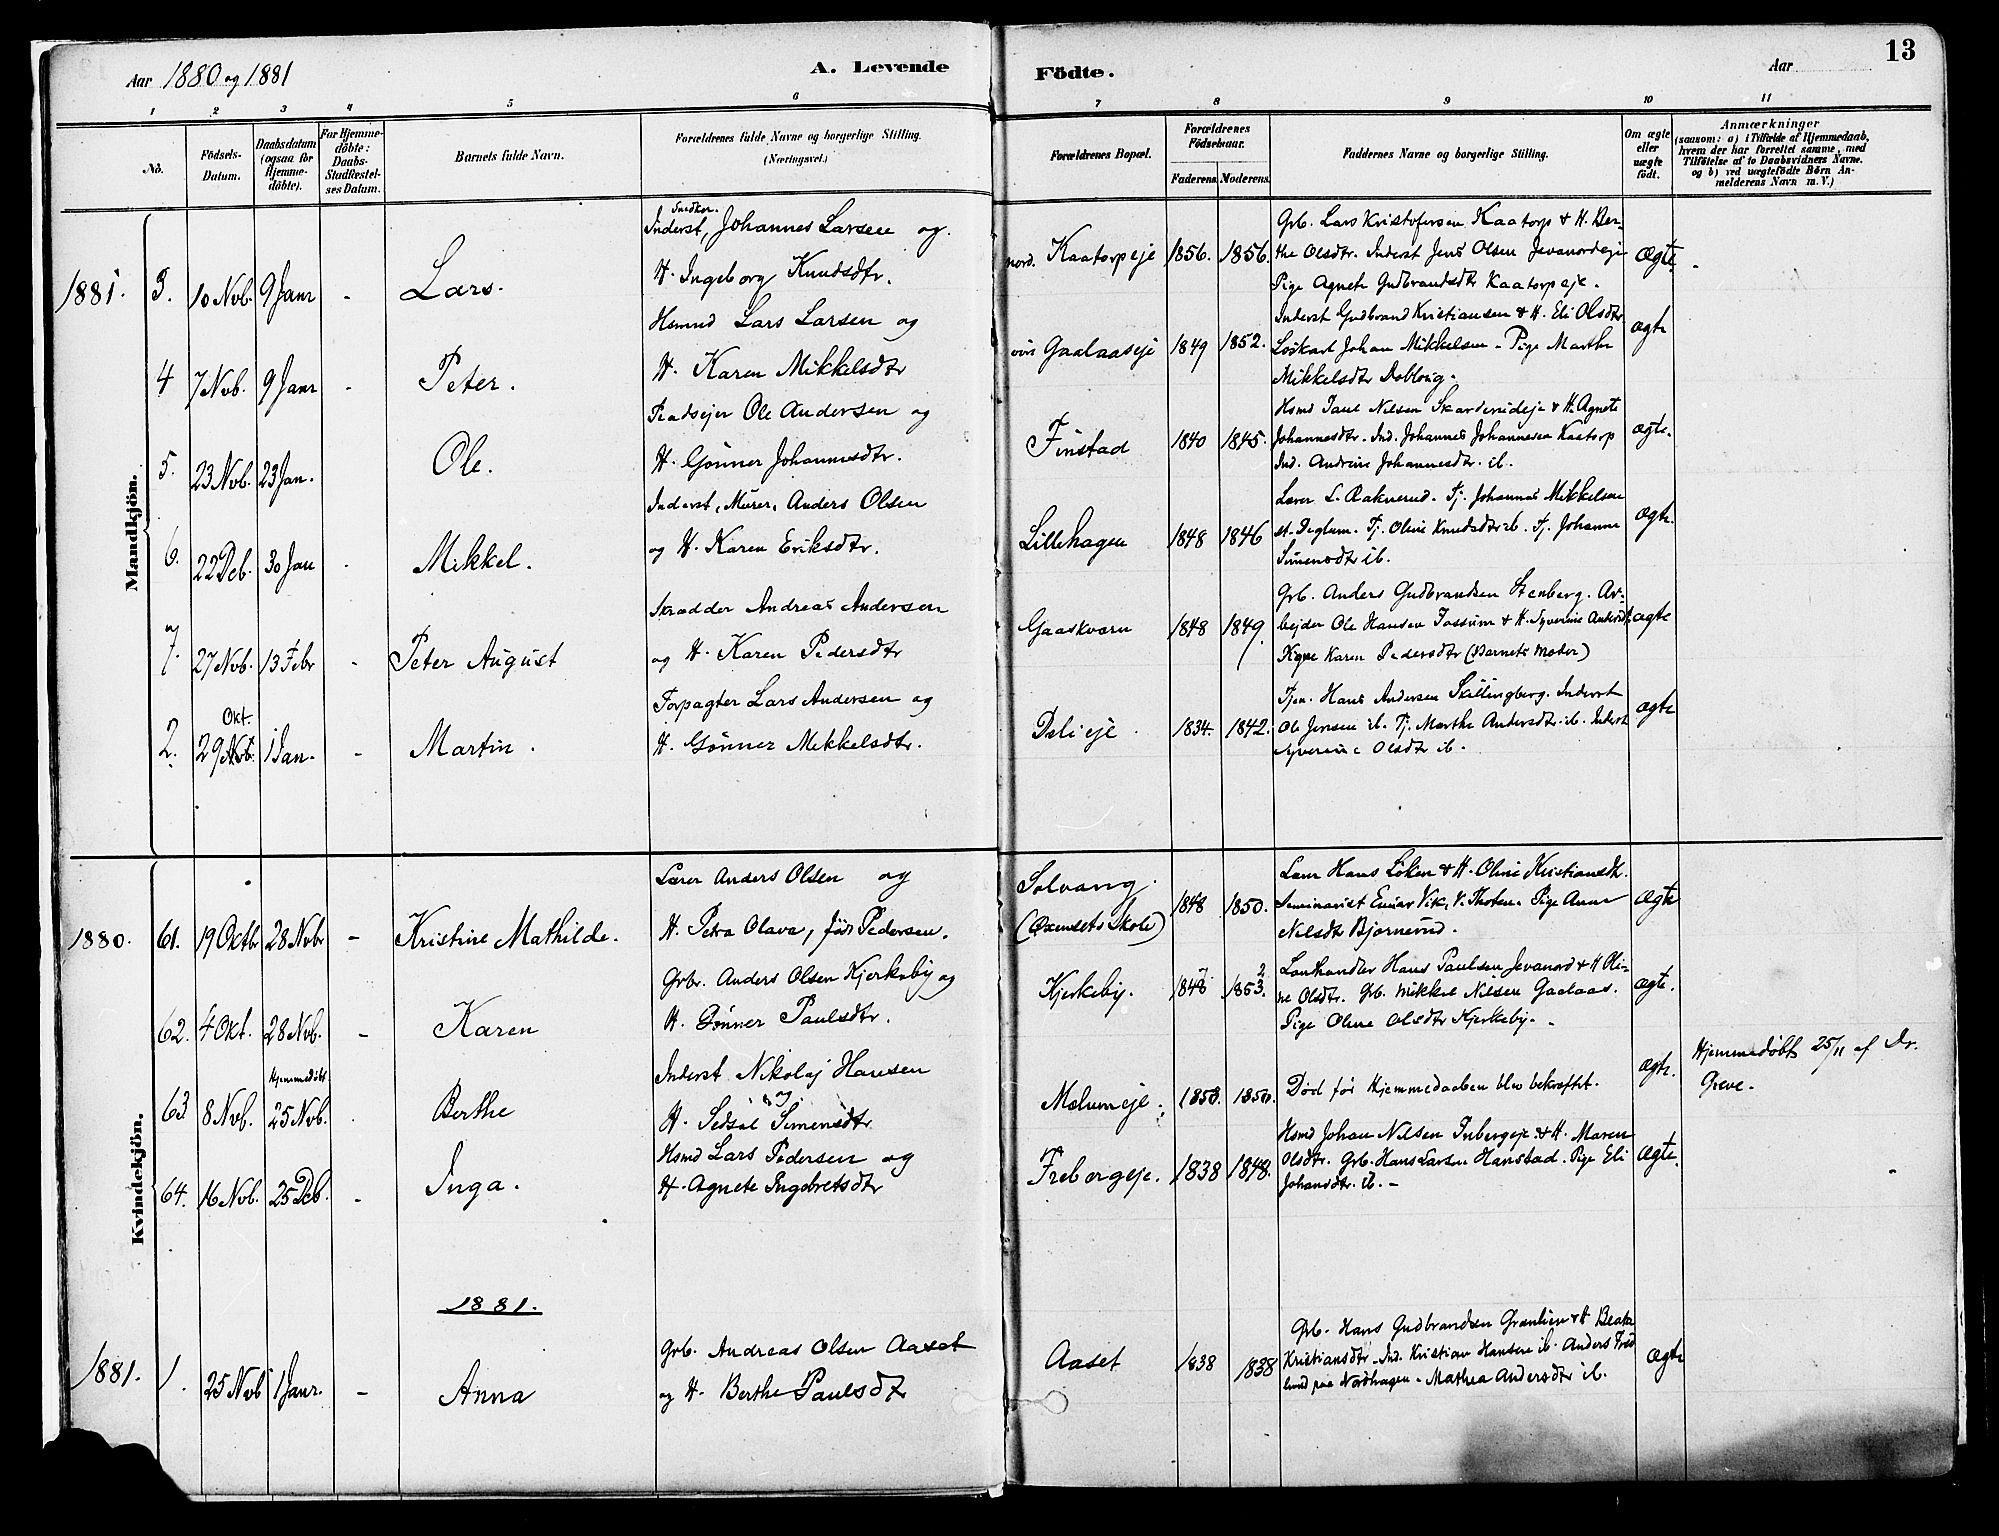 Aar 1880 og 1881
A. Levende
Födte.
Aar
13
1 2 3 4 5 6 7 8 9 10 11
No.
Födsels-Datum.
Daabsdatum (ogsaa for Hjemme-döbte).
For Hjemme-döbte: Daabs-Stadfæstel-ses Datum.
Barnets fulde Navn.
Forældrenes fulde Navne og borgerlige Stilling.
(Næringsvei.)
Forældrenes Bopæl.
Forældrenes Födselsaar.
Faderens. Moderens.
Faddernes Navne og borgerlige Stilling.
Om ægte eller uægte födt.
Anmærkninger
(saasom: a) i Tilfælde af Hjemmedaab, hvem der har forrettet samme, med Tilföielse af to Daabsvidners Navne. og b) ved uægtefödte Börn An-melderens Navn m. V.)
Mandkjön.
1881. 3. 10 Nob. 9 Janr - Lars.
Snedker.
Inderst, Johannes Larsen og
H. Ingeborg Knudsdtr.
nord. Kaatorpeje 1856. 1856.
Grb. Lars Kristofersen Kaatorp & H. Ber-
the Olsdtr. Inderst Jens Olsen Jevanordeje
Pige Agnete Gudbrandsdtr Kaatorpeje.
ægte. -
4 7 Nob. 9 Janr - Peter.
Hsmnd Lars Larsen og
H. Karen Mikkelsdtr
Gaalaaseje 1849 1852.
Inderst Gudbrand Kristiansen & H. Eli Olsdtr
Løskarl Johan Mikkelsen - Pige Marthe
Mikkelsdtr Dobloug.
ægte
5. 23 Nob. 23 Jan. Ole.
Pladsejer Ole Andersen og
H. Gønner Johannesdtr.
Finstad 1840 1845.
Hsmd Paul Nilsen Skarderudeje & H. Agnete
Johannesdtr. Ind. Johannes Johannesen Kaatorp
Ind. Andrine Johannesdtr. ib.
ægte.
6. 22 Deb. 30 Jan Mikkel.
Inderst, Murer, Anders Olsen
og H. Karen Eriksdtr.
Lillehagen 1848 1846
Lærer L. Raknerud. Tj. Johannes Mikkelsen
st. Deglum. Tj. Oline Knudsdtr ib. Tj. Johanne
Simensdtr ib.
ægte.
7. 27 Nob. 13 Febr - Peter August
Skrædder Andreas Andersen
og H. Karen Pedersdtr
Gaaskværn 1848 1849.
Grb. Anders Gudbrandsen Stenberg. Ar-
bejder Ole Hansen Fossum & H. Syverine Andersdtr.
Kone Karen Pedersdtr (Barnets Moder)
ægte
Okt.
2. 29 Nob. 1 Jan - - Martin.
Forpagter Lars Andersen og
H. Gønner Mikkelsdtr.
Delieje. 1834. 1842.
Tjen. Hans Andersen Skillingberg. Inderst
Ole Jensen ib. Tj. Marthe Andersdtr. ib. Inderst
Syverine Olsdtr ib.
ægte
Kvindekjön.
1880. 61. 19 Oktb 28 Nobr - Kristine Mathilde.
Lærer Anders Olsen og
H. Petra Olava, født Pedersen.
Solvang.
(Øxensets Skole) 1848 1850.
Lærer Hans Løken & H. Oline Kristiansdtr.
Seminarist Einar Vik, V. Thoten. Pige Anne
Nilsdtr Bjørnerud.
ægte
62. 4 Okt. 28 Nob. - Karen
Grbr. Anders Olsen Kjerkeby og
H. Gønner Paulsdtr.
Kjerkeby. 1848 1853.
Landhandler Hans Paulsen Jevanord & H Oli-
ne Olsdtr. Grb. Mikkel Nilsen Gaalaas.
Pige Oline Olsdtr Kjerkeby. -
ægte.
Hjemmedøbt
63 8 Nob. 25 Nob. Berthe
Inderst Nikolaj Hansen
og
H. Sedsel Simensdtr
Melumeje. 1853. 1850.
Død før Hjemmedaaben blev bekræftet.
ægte.
Hjemmedøbt 25/11 af Dr.
Greve.
64. 16 Nob. 25 Deb. - Inga.
Hsmd Lars Pedersen og
H. Agnete Ingebretsdtr
Frebergeje. 1838 1848.
Hsmd Johan Nilsen Frebergeje & H. Maren
Olsdtr. Grb. Hans Larsen Hanstad. Pige Eli
Johansdtr. ib. -
ægte.
1881.
1881. 1. 25 Nob 1 Janr. - Anna
Grb. Andreas Olsen Aaset
og H. Berthe Paulsdtr
Aaset 1838 1838
Grb. Hans Gudbrandsen Grønlien & H Beate
Kristiansdtr. Ind. Kristian Hansen ib. Anders Fred
lund paa Nordhagen. Mathea Andersdtr ib.
ægte